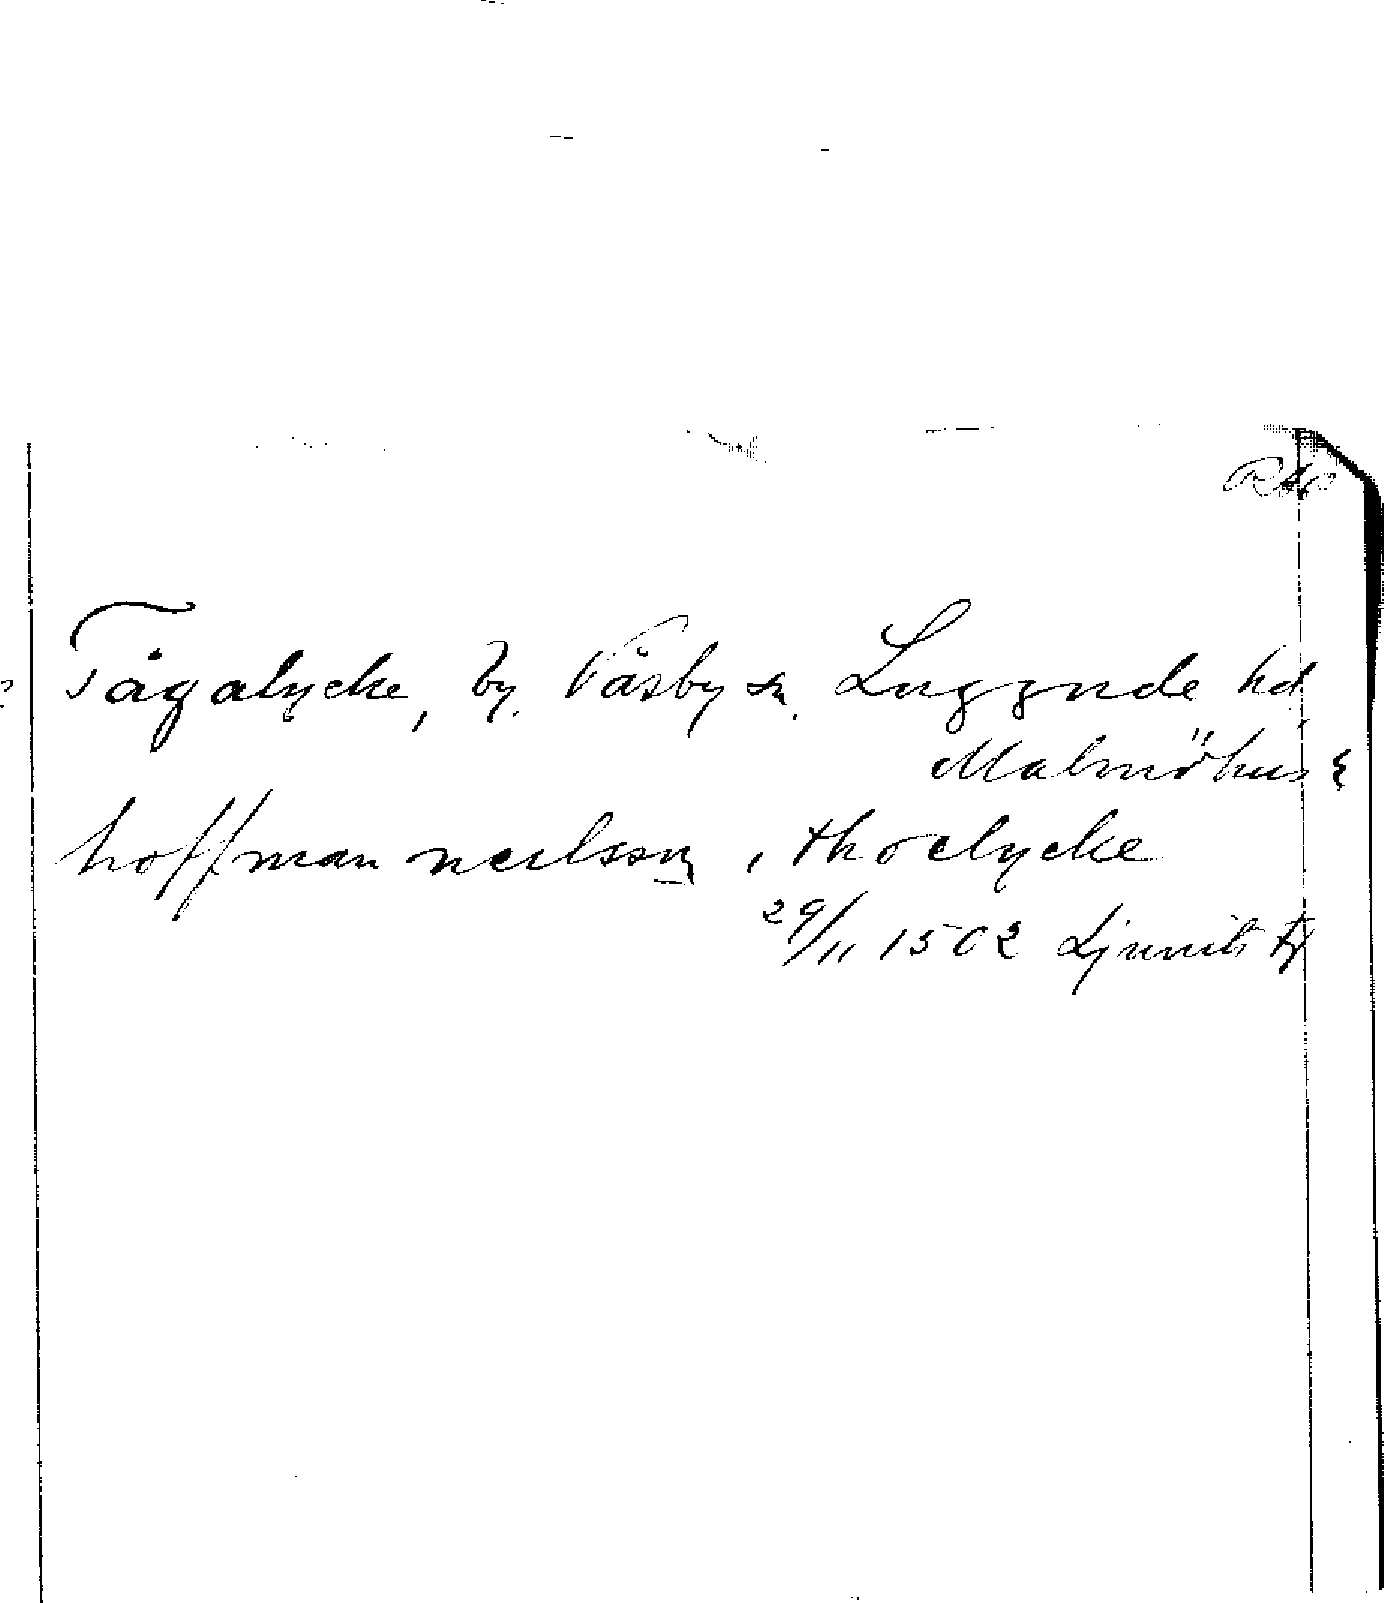 Tågalycke, by. Väsby sn. Luggude hd
Malmöhus l
hoffman neilssøn, i thoelycke
29/11 1502